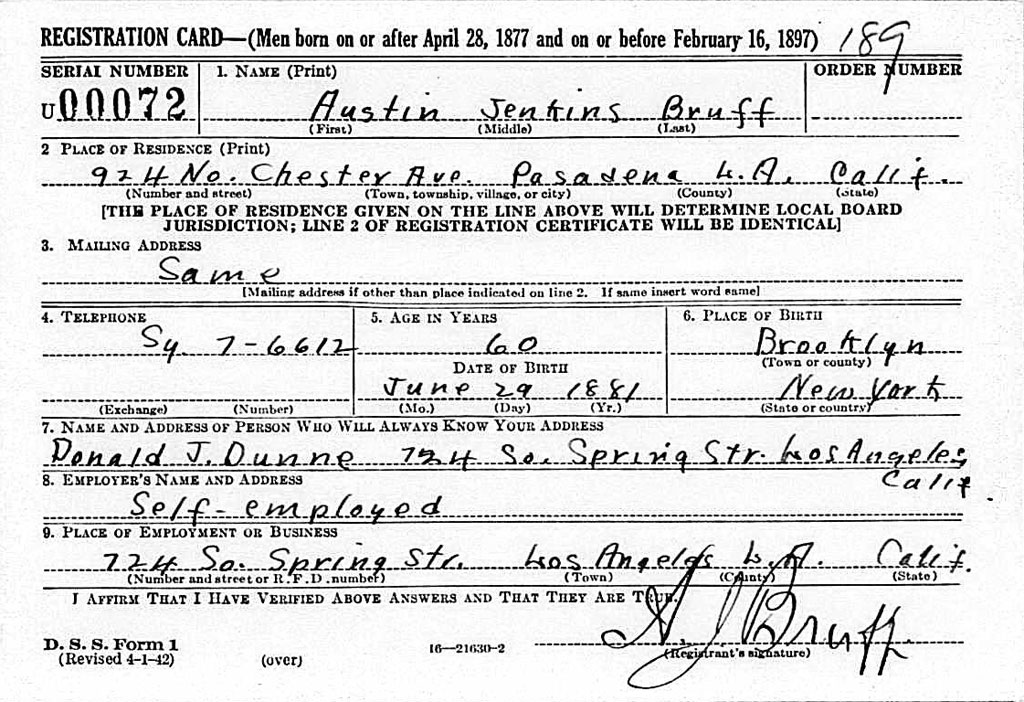 REGISTRATION CARD—(Men born on or after April 28, 1877 and on or before February 16, 1897) 189
SERIAL NUMBER 1. NAME (Print) ORDER NUMBER
U 00072 Austin Jenkins Bruff
(First) (Middle) (Last)
2 PLACE OF RESIDENCE (Print)
924 No. Chester Ave. Pasadena L.A. Calif.
(Number and street) (Town, township, village, or city) (County) (State)
[THE PLACE OF RESIDENCE GIVEN ON THE LINE ABOVE WILL DETERMINE LOCAL BOARD
JURISDICTION; LINE 2 OF REGISTRATION CERTIFICATE WILL BE IDENTICAL]
3. MAILING ADDRESS
Same
[Mailing address if other than place indicated on line 2. If same insert word same]
4. TELEPHONE 5. AGE IN YEARS 6. PLACE OF BIRTH
Sy. 7-6612 60 Brooklyn
DATE OF BIRTH (Town or county)
June 29 1881 New York
(Exchange) (Number) (Mo.) (Day) (Yr.) (State or country)
7. NAME AND ADDRESS OF PERSON WHO WILL ALWAYS KNOW YOUR ADDRESS
Donald J. Dunne 724 So. Spring Str. Los Angeles,
8. EMPLOYER'S NAME AND ADDRESS Calif.
Self-employed
9. PLACE OF EMPLOYMENT OR BUSINESS
724 So. Spring Str. Los Angeles L.A. Calif.
(Number and street or R. F. D. number) (Town) (County) (State)
I AFFIRM THAT I HAVE VERIFIED ABOVE ANSWERS AND THAT THEY ARE TRUE.
A J Bruff.
D. S. S. Form 1
(Revised 4-1-42) (over) 16—21630-2 (Registrant's signature)